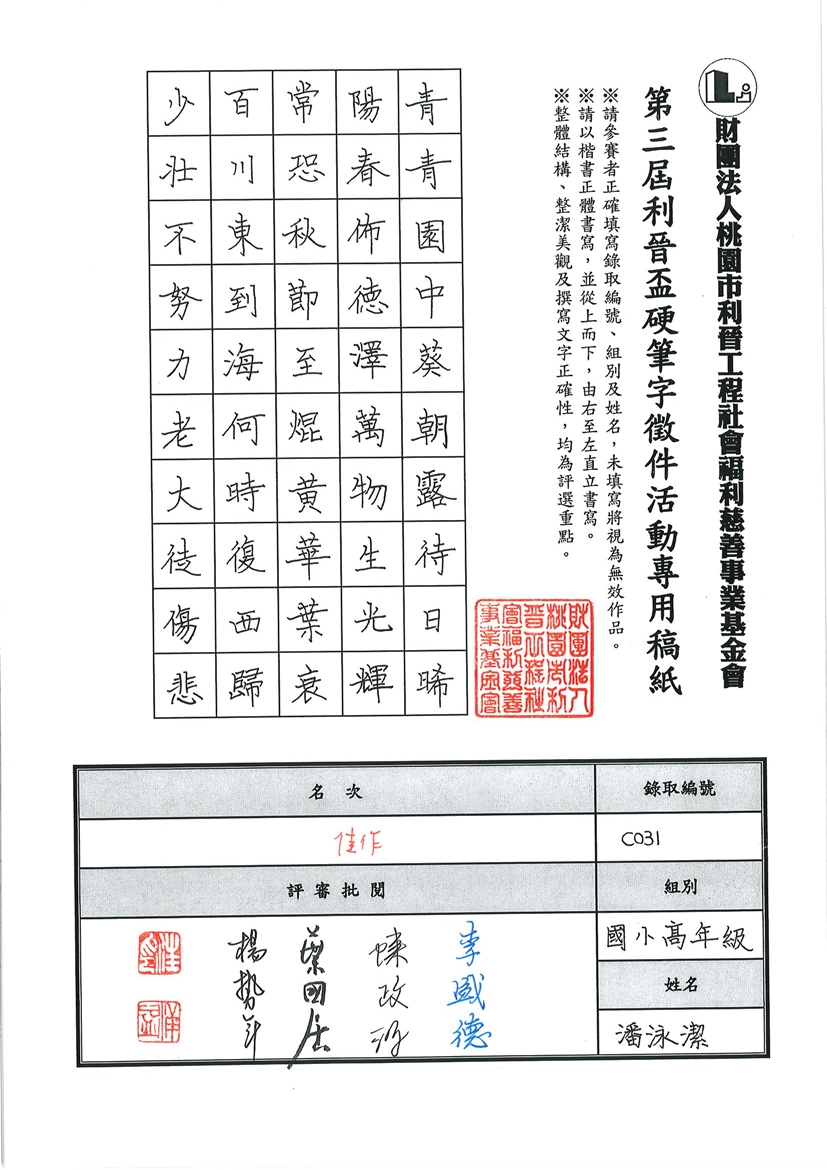 財團法人桃園市利晉工程社會福利慈善事業基金會
第三屆利晉盃硬筆字徵件活動專用稿紙
※請參賽者正確填寫錄取編號、組別及姓名，未填寫將視為無效作品。
※請以楷書正體書寫，並從上而下，由右至左直立書寫。
※整體結構、整潔美觀及撰寫文字正確性，均為評選重點。
青青園中葵朝露待日晞
陽春佈德澤萬物生光輝
常恐秋節至焜黃華葉衰
百川東到海何時復西歸
少壯不努力老大徒傷悲
財團法人
桃園市利
晉工程社
會福利慈善
事業基金會
錄取編號
C031
組別
國小高年級
姓名
潘泳潔
名次
佳作
評審批閱
李國德
葉國居